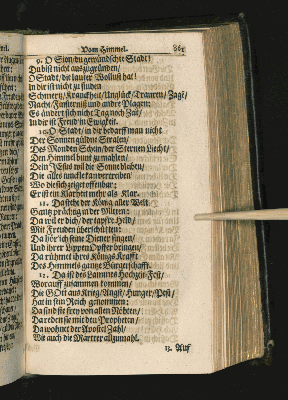 Vom Himmel. 861
9. O Sion du gewündschte Stadt!
Du bist nicht auszugründen/
O Stadt/ die lauter Wollust hat!
in dir ist nicht zu finden
Schmertz/ Kranckheit/ Unglück/ Trauren/ Zagē/
Nacht/ Finsternüß und ander Plagen:
Es ändert sich nicht Tag noch Zeit/
In dir ist Freud in Ewigkeit.
10. O Stadt/ in dir bedarff man nicht
Der Sonnen güldne Stralen/
Des Monden Schein/ der Sternen Liecht/
Den Himmel bunt zu mahlen/
Dein JEsus wil die Sonne bleiben/
Die alles tunckle kan vertreiben/
Er ist ein Klarheit mehr als klar.
11. Da steht der König aller Welt
Gantz prächtig in der Mitten:
Da wil er dich/ der tapfre Held/
Mit Freuden überschütten:
Da hör ich seine Diener singen
Und ihrer Lippen Opffer bringen/
Da rühmet ihres Königs Krafft
Des Himmels gantze Bürgerschafft.
12. Da ist des Lammes Hochzeit-Fest/
Worauff zusammen kommen/
Die GOtt aus Krieg/ Angst/ Hunger/ Pest/
Hat in sein Reich genommen:
Da sind sie frey von allen Nöhten/
Da reden sie mit den Propheten/
Da wohnet der Apostel Zahl/
Wie auch die Märtrer allzumahl.
13. Auf